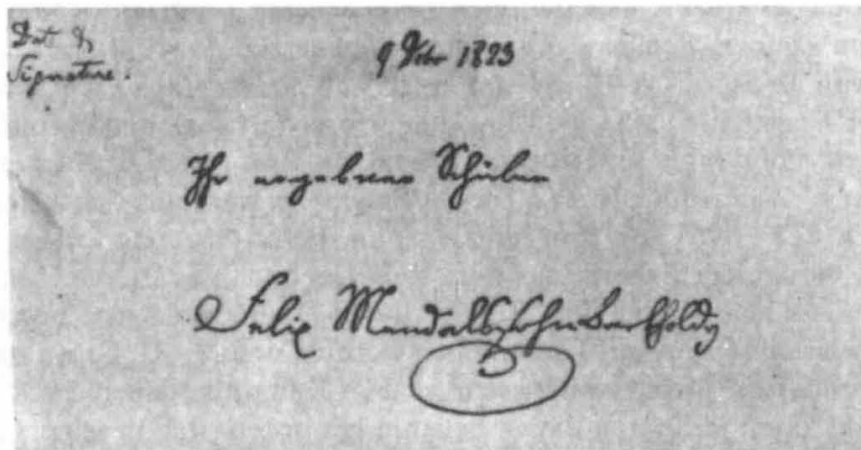 Dat &
Signature.
9 Debr 1823
Ihr ergebener Schüler
Felix Mendelssohn Bartholdy